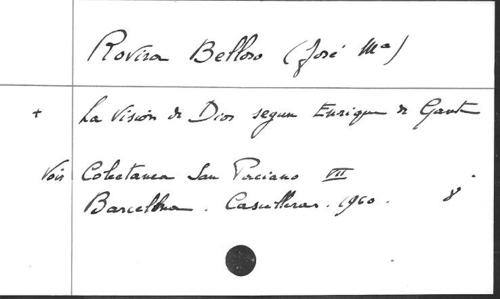 Rovira Belloso (José Mª)
+ La Visión de Dios segun Enrique de Gante
Voir Colectanea San Paciano VII
Barcelona. Casulleras. 1960. 8°